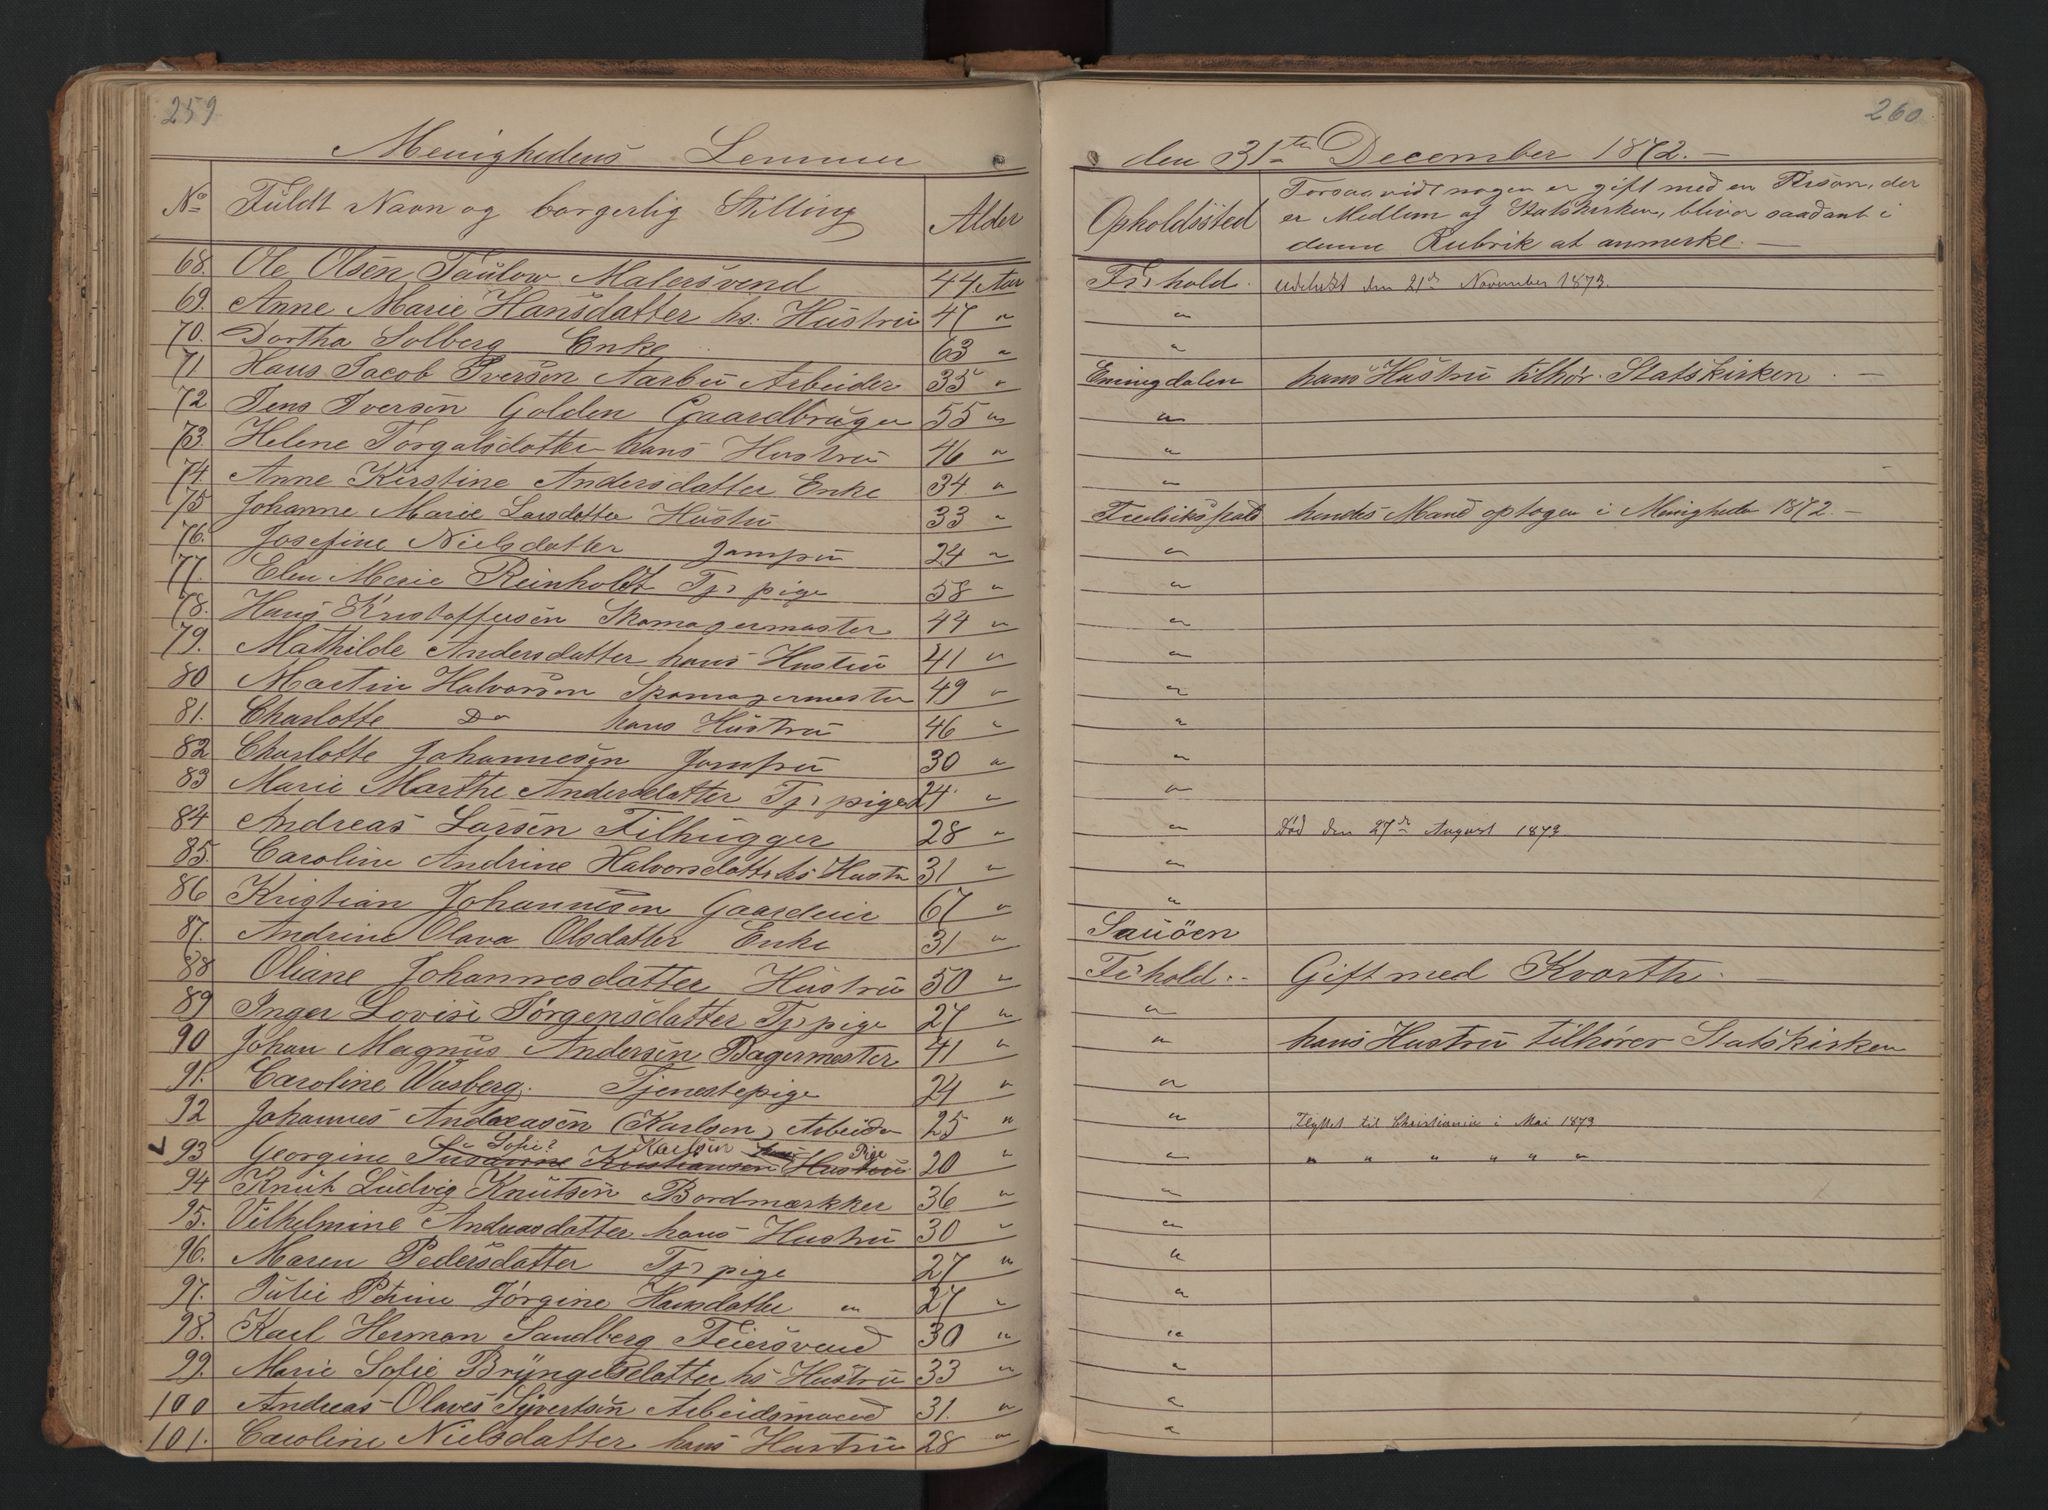 259
Menighedens Lemmer
No Fuldt Navn og borgerlig Stilling Alder
68. Ole Olsen Taulow Malersvend 44 Aar
69. Anne Marie Hansdatter hs. Hustru 47 "
70. Dortha Solberg Enke 63 "
71 Hans Jacob Iversen Aarbu Arbeider 35 "
72 Jens Iversen Golden Gaardbruger 55 "
73. Helene Torgalsdatter hans Hustru 46 "
74. Anne Kirstine Andersdatter Enke 34 "
75 Johanne Marie Larsdatter Hustru 33 "
76. Josefine Nielsdatter Jomfru 24 "
77. Elen Marie Reinholdt Tj: pige 58 "
78. Hans Kristoffersen Skomagermester 44 "
79. Mathilde Andersdatter hans Hustru 41 "
80 Martin Halvorsen Skomagermester 49 "
81. Charlotte Do hans Hustru 46 "
82 Charlotte Johannesen Jomfru 30 "
83 Marie Marthe Andersdatter Tj: pige 24 "
84 Andreas Larsen Filhugger 28 "
85. Caroline Andrine Halvorsdatter hs Hustru 31 "
86 Kristian Johannesen Gaardeier 67 "
87. Andrine Olava Olsdatter Enke 31 "
88 Oliane Johannesdatter Hustru 50 "
89 Inger Lovise Jørgensdatter Tj: pige 27 "
90 Johan Magnus Andersen Bagermester 41 "
91. Caroline Wasberg. Tjenestepige 24 "
92 Johannes Andreasen (Karlsen) Arbeider 25 "
93 Georgine Susanne Sofie? Kristiansen Karlsen Hustru Pige 20 "
94 Knut Ludvig Knutsen Bordmærkker 36 "
95. Vilhelmine Andreasdatter hans Hustru 30 "
96. Maren Pedersdatter Tj: pige 27 "
97. Julie Petrine Jørgine Hansdatter " 27 "
98. Karl Herman Sandberg Feiersvend 30 "
99. Marie Sofie Bryngelsdatter hs Hustru 33 "
100 Andreas Olaves Syvertsen Arbeidsmand 31. "
101. Caroline Nielsdatter hans Hustru 28 "
260
den 31te December 1872. —
Opholdssted
Forsaavidt nogen er gift med en Person, der
er Medlem af Statskirken, bliver saadant i
denne Rubrik at anmerke. —
Fr:hold. udelukt den 21de November 1873.
"
"
Enningdalen hans Hustru tilhør. Statskirken. —
"
"
"
Fredrikstad hendes Mand optagen i Menigheden 1872. —
"
"
"
"
"
"
"
"
" Død den 27de August 1873.
"
"
Sauöen
Fr:hold.. Gift med Kvarth. —
"
" hans Hustru tilhører Statskirken
"
" Flyttet til Christiania i Mai 1873
" " " " " " "
"
"
"
"
"
"
"
"